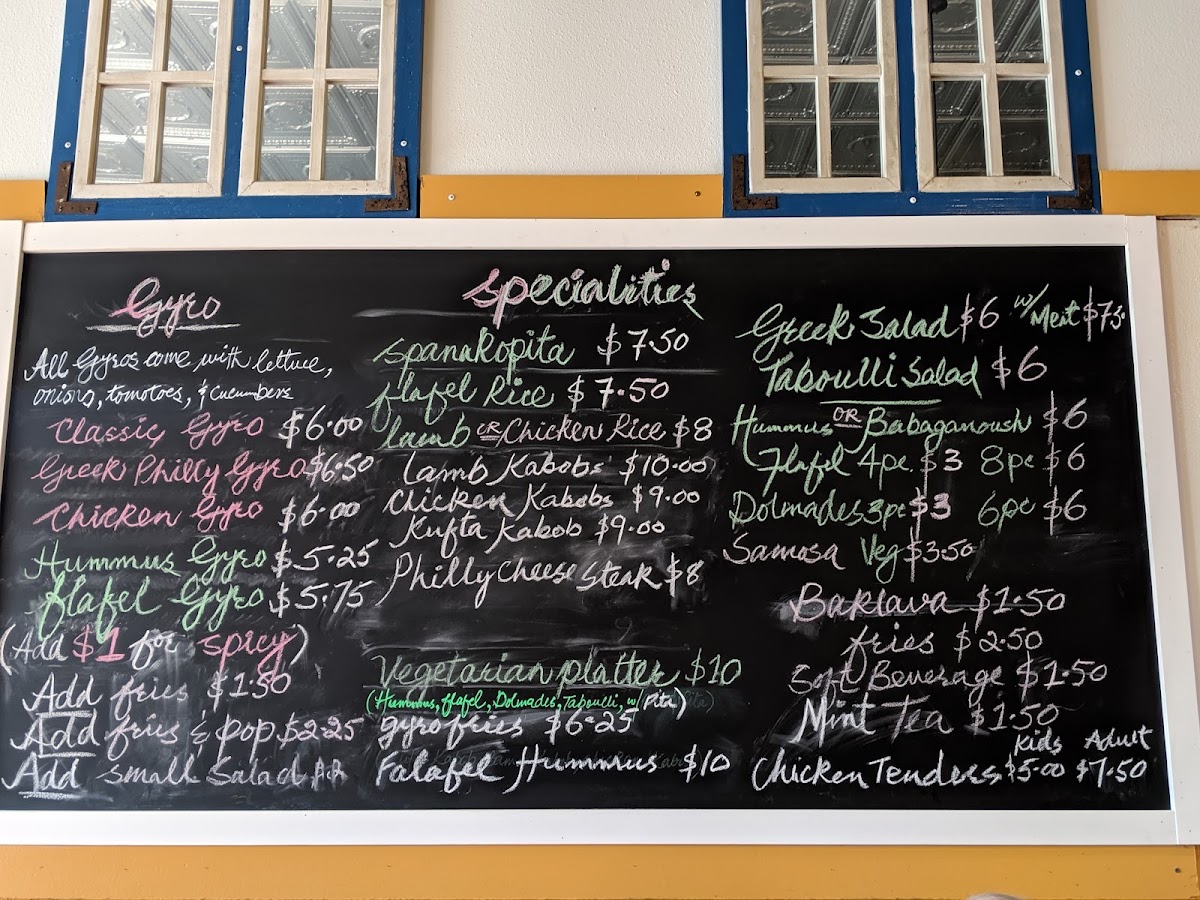 Gyro
All Gyros come with lettuce,
onions, tomotoes, & cucumbers
Classic Gyro $6.00
Greek Philly Gyro $6.50
Chicken Gyro $6.00
Hummus Gyro $5.25
flafel Gyro $5.75
(Add $1 for spicy)
Add fries $1.50
Add fries & pop $2.25
Add small Salad
Specialities
Spanakopita $7.50
flafel Rice $7.50
lamb OR Chicken Rice $8
Lamb Kabobs $10.00
Chicken Kabobs $9.00
Kufta Kabob $9.00
Philly Cheese Steak $8
Vegetarian platter $10
(Hummus, flafel, Dolmades, Taboulli, w/ Pita)
gyro fries $6.25
Falafel Hummus $10
Greek Salad $6 w/ Meat $7.5
Taboulli Salad $6
Hummus OR Babaganoush $6
flafel 4pc $3 8pc $6
Dolmades 3pc $3 6pc $6
Samosa Veg $3.50
Baklava $1.50
fries $2.50
Soft Beverage $1.50
Mint Tea $1.50
Kids Adult
Chicken Tenders $5.00 $7.50